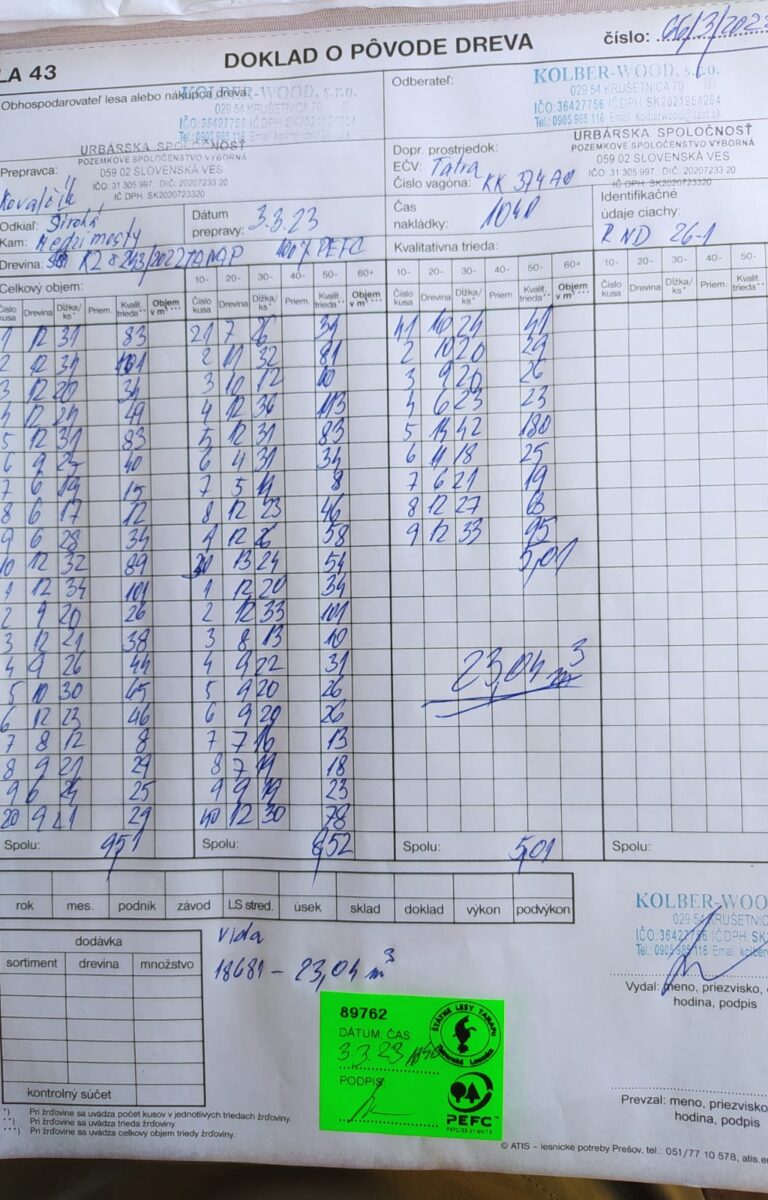 LA 43
DOKLAD O PÔVODE DREVA
číslo: 66/3/2023
Obhospodarovateľ lesa alebo nákupca dreva:
KOLBER-WOOD, s.r.o.
029 54 KRUŠETNICA 70
IČO:36427756 IČDPH: SK2021854264
Tel.: 0905 965 116
URBÁRSKA SPOLOČNOSŤ
POZEMKOVÉ SPOLOČENSTVO VYBORNÁ
059 02 SLOVENSKÁ VES
IČO: 31 305 997, DIČ: 20207233 20
IČ DPH: SK2020723320
Odberateľ:
KOLBER-WOOD, s.r.o.
029 54 KRUŠETNICA 70
IČO:36427756 IČDPH: SK2021854264
Tel.: 0905 965 116
URBÁRSKA SPOLOČNOSŤ
POZEMKOVÉ SPOLOČENSTVO VYBORNÁ
059 02 SLOVENSKÁ VES
IČO: 31 305 997, DIČ: 20207233 20
IČ DPH: SK2020723320
Prepravca:
Kovalčík
Dopr. prostriedok:
EČV: Tatra
Číslo vagóna: KK 374AD
Odkiaľ: Široká
Kam: Medzi mosty
Dátum
prepravy: 3.3.23
Čas
nakládky: 1040
Identifikačné
údaje ciachy:
R ND 26-1
Drevina: /2022 TANAP 100% PEFC
Kvalitatívna trieda:
Celkový objem:
10- 20- 30- 40- 50- 60+
10- 20- 30- 40- 50- 60+
10- 20- 30- 40- 50-
Číslo kusa Drevina Dĺžka/ks* Priem. Kvalit. trieda** Objem v m³***
Číslo kusa Drevina Dĺžka/ks* Priem. Kvalit. trieda** Objem v m³***
Číslo kusa Drevina Dĺžka/ks* Priem. Kvalit. trieda** Objem v m³***
Číslo kusa Drevina Dĺžka/ks* Priem. Kvalit. trieda**
1 12 31 83 21 7 26 34 41 10 24 41
2 12 34 101 2 11 32 81 2 10 20 29
3 12 20 34 3 10 12 10 3 9 20 26
4 12 24 49 4 12 36 113 4 6 23 23
5 12 31 83 5 12 31 83 5 14 42 180
6 9 25 40 6 4 31 34 6 11 18 25
7 6 19 15 7 5 14 8 7 6 21 19
8 6 17 12 8 12 23 46 8 12 27 63
9 6 28 34 9 12 26 58 9 12 33 95
10 12 32 89 30 13 24 54 5,01
1 12 34 101 1 12 20 34
2 9 20 26 2 12 33 101
3 12 21 38 3 8 13 10
4 9 26 44 4 9 22 31
5 10 30 65 5 9 20 26
6 12 23 46 6 9 20 26
7 8 12 8 7 7 16 13
8 9 21 29 8 7 19 18
9 6 24 25 9 9 19 23
20 9 21 29 40 12 30 78
23,04 m³
Spolu: 951
Spolu: 8,52
5,01
Spolu:
rok mes. podnik závod LS stred. úsek sklad doklad výkon podvýkon
dodávka
sortiment drevina množstvo
kontrolný súčet
Vjda
18681 - 23,04 m³
89762
DÁTUM, ČAS
3.3.23
PODPIS
ŠTÁTNE LESY TANAPU
PEFC™
KOLBER-WOOD
029 54 KRUŠETNICA
IČO:36427756 IČDPH: SK
Tel.: 0905 965 116 Email: kolber
Vydal: meno, priezvisko,
hodina, podpis
Prevzal: meno, priezvisko,
hodina, podpis
*) Pri žrďovine sa uvádza počet kusov v jednotlivých triedach žrďoviny.
**) Pri žrďovine sa uvádza trieda žrďoviny.
***) Pri žrďovine sa uvádza celkový objem triedy žrďoviny.
© ATIS – lesnícke potreby Prešov, tel.: 051/77 10 578, atis.e